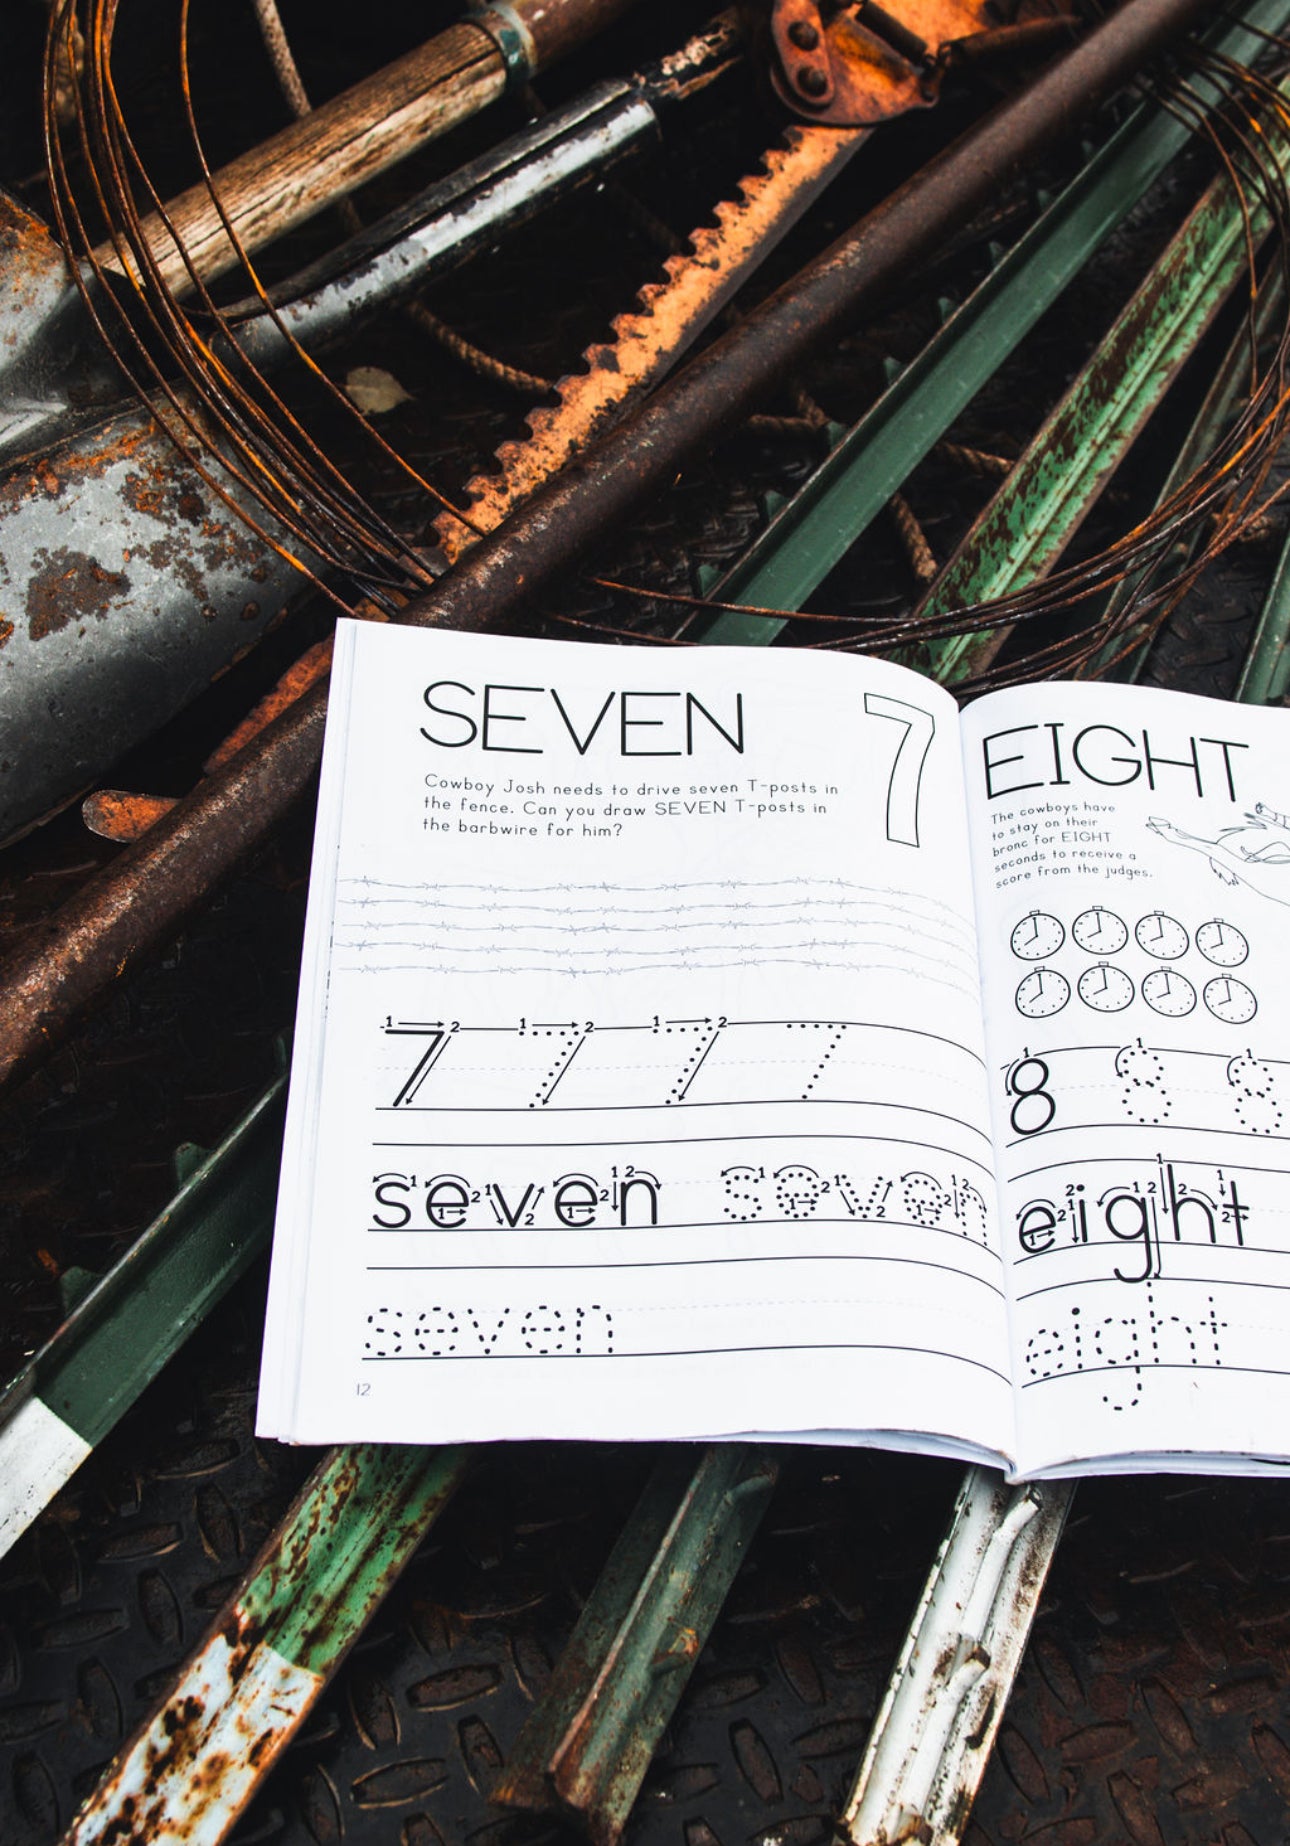 SEVEN
7
Cowboy Josh needs to drive seven T-posts in
the fence. Can you draw SEVEN T-posts in
the barbwire for him?
1 2 1 2 1 2
7 7 7 7
seven seven
seven
12
EIGHT
The cowboys have
to stay on their
bronc for EIGHT
seconds to receive a
score from the judges.
1 1 1
8 8 8
eight
eight